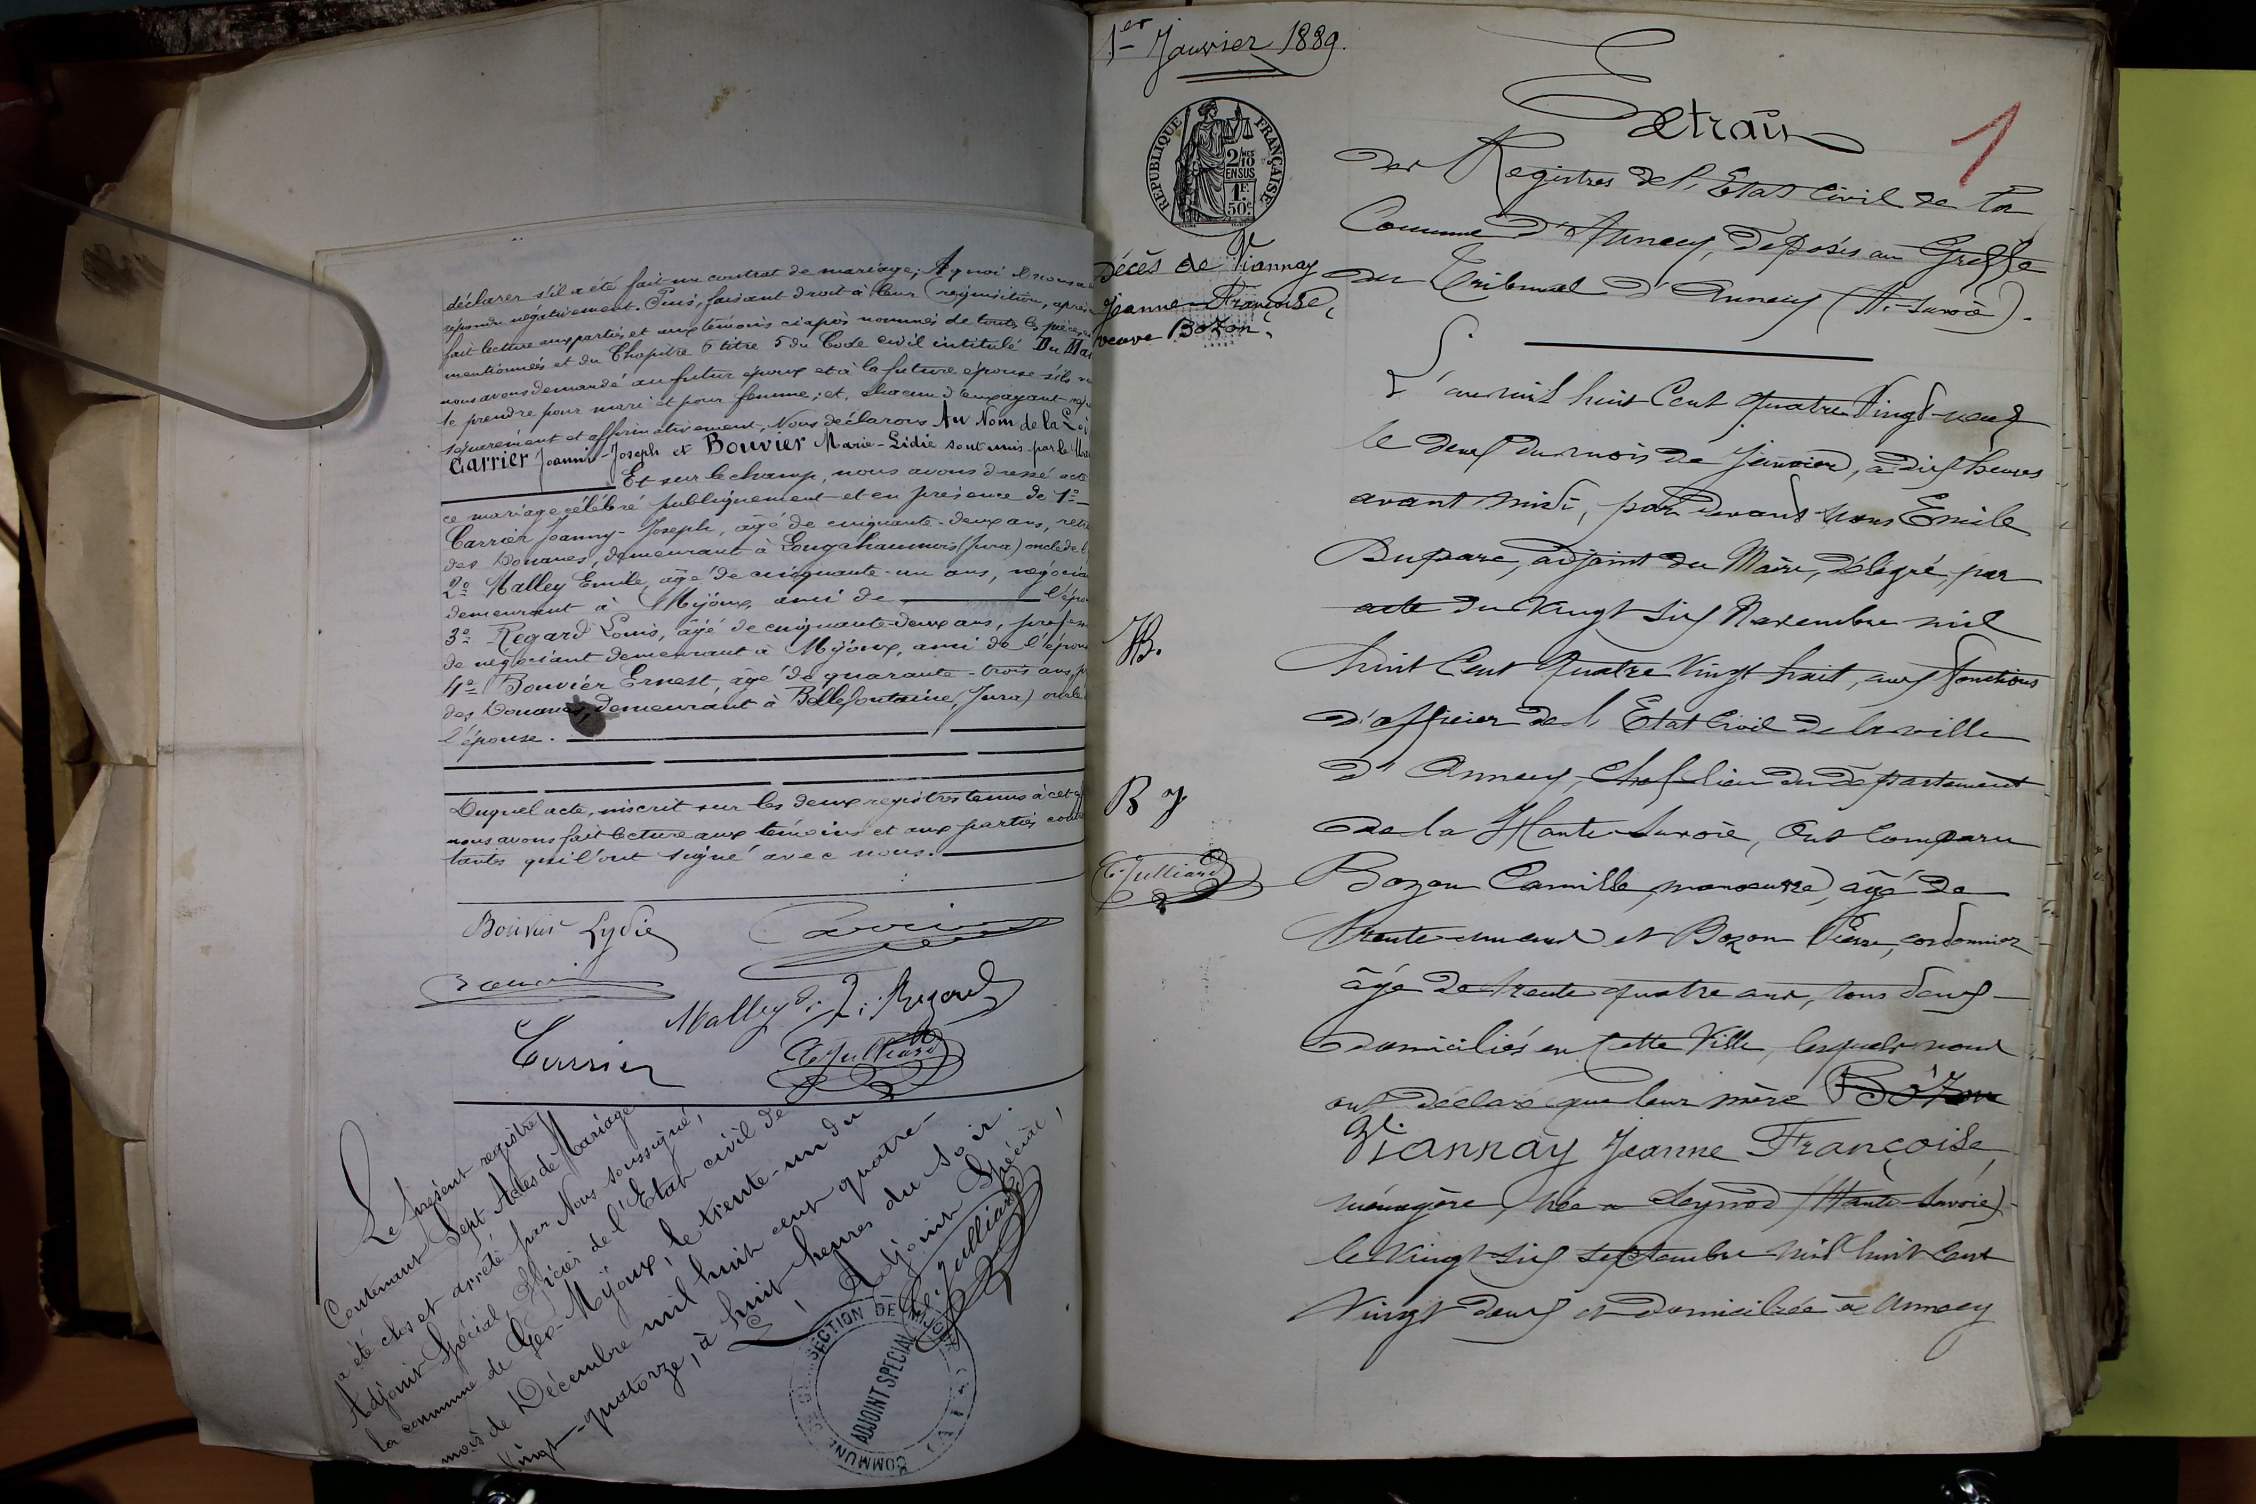 déclarer s'il a été fait un contrat de mariage; A quoi il nous a
répondu négativement. Puis, faisant droit à leur réquisition, après
fait lecture aux parties et aux témoins ci après nommés de toutes les pièces
mentionnées et du Chapitre 6 titre 5 du Code civil intitulé Du Mar
nous avons demandé au futur époux et à la future épouse s'ils
se prendre pour mari et pour femme; et, chacun d'eux ayant
séparément et affirmativement, Nous déclarons Au Nom de la Loi
Carrier Joanni-Joseph et Bouvier Marie-Lidie sont unis par le
Et sur le champ, nous avons dressé acte
ce mariage célébré publiquement et en présence de 1º
Carrier Joanny-Joseph, âgé de cinquante-deux ans, retr
des Douanes, demeurant à Longchaumois (Jura) oncle de l
2º Malley Emile, âgé de cinquante-un ans, négocia
demeurant à Mijoux, ami de l'épou
3º Regard Louis, âgé de cinquante-deux ans, profess
de négociant demeurant à Mijoux, ami de l'épou
4º Bouvier Ernest, âgé de quarante-trois ans,
des Douanes, demeurant à Bellefontaine, (Jura) oncle
l'épouse.
Duquel acte, inscrit sur les deux registres tenus à cet
nous avons fait lecture aux témoins et aux parties
tantes qui l'ont signé avec nous.
Bouvier Lydie
Carrier
Malley
L. Regard
Julliard
Le présent registre
Contenant Sept Actes de Mariage
a été clos et arrêté par Nous soussigné,
Adjoint Spécial, Officier de l'Etat civil de
la commune de Gex-Mijoux, le trente-un du
mois de Décembre mil huit cent quatre-
vingt-quatorze, à huit heures du soir.
L'Adjoint Spécial,
Julliard
COMMUNE DE GEX SECTION DE MIJOUX (AIN)
ADJOINT SPECIAL
1er Janvier 1889.
REPUBLIQUE FRANÇAISE
2/10
EN SUS
1F.
50c
Décès de Viannay
Jeanne-Françoise,
veuve Bozon.
B.
B
Julliard
1
Extrait
des Registres de l'Etat Civil de la
Commune d'Annecy, déposés au Greffe
du Tribunal d'Annecy (Hte-Savoie).
L'an mil huit Cent quatre Vingt-neuf
le deux du mois de Janvier, à dix heures
avant midi, par Devant nous Emile
Duparc, adjoint du Maire, délégué par
acte du Vingt six Novembre mil
huit Cent Quatre Vingt huit, aux fonctions
d'officier de l'Etat Civil de la ville
d'Annecy, chef lieu du département
de la Haute-Savoie, Ont Comparu
Bozon Camille, manoeuvre, âgé de
trente-un ans et Bozon Pierre, cordonnier
âgé de trente quatre ans, tous deux
domiciliés en Cette Ville, lesquels nous
ont déclaré que leur mère Bozon
Viannay Jeanne Françoise,
ménagère, née à Seynod (Haute-Savoie)
le Vingt six septembre mil huit Cent
Vingt deux et domiciliée à Annecy